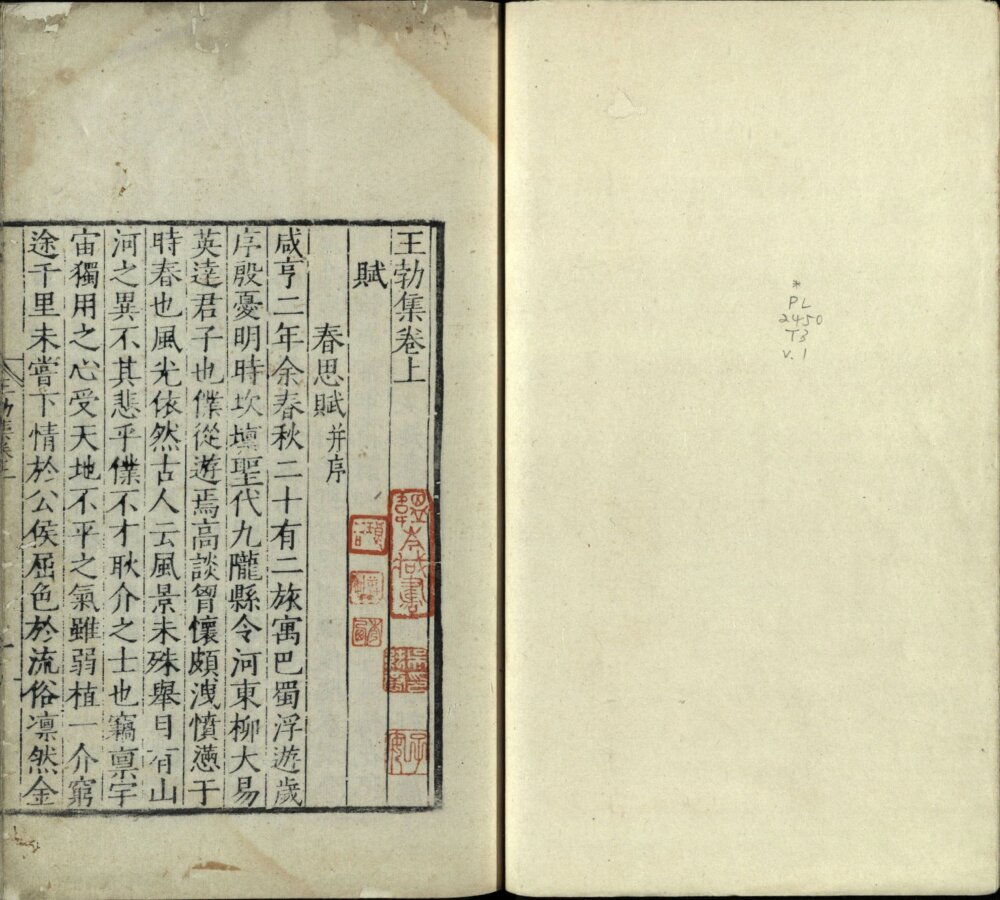 *
PL
2450
T3
v.1
王勃集卷上
賦
春思賦并序
咸亨二年余春秋二十有二旅寓巴蜀浮遊歲
序殷憂明時坎壈聖代九隴縣令河東柳大易
英達君子也僕從遊焉高談胷懷頗洩憤懣于
時春也風光依然古人云風景未殊舉目有山
河之異不其悲乎僕不才耿介之士也竊稟宇
宙獨用之心受天地不平之氣雖弱植一介窮
途千里未嘗下情於公侯屈色於流俗凛然金